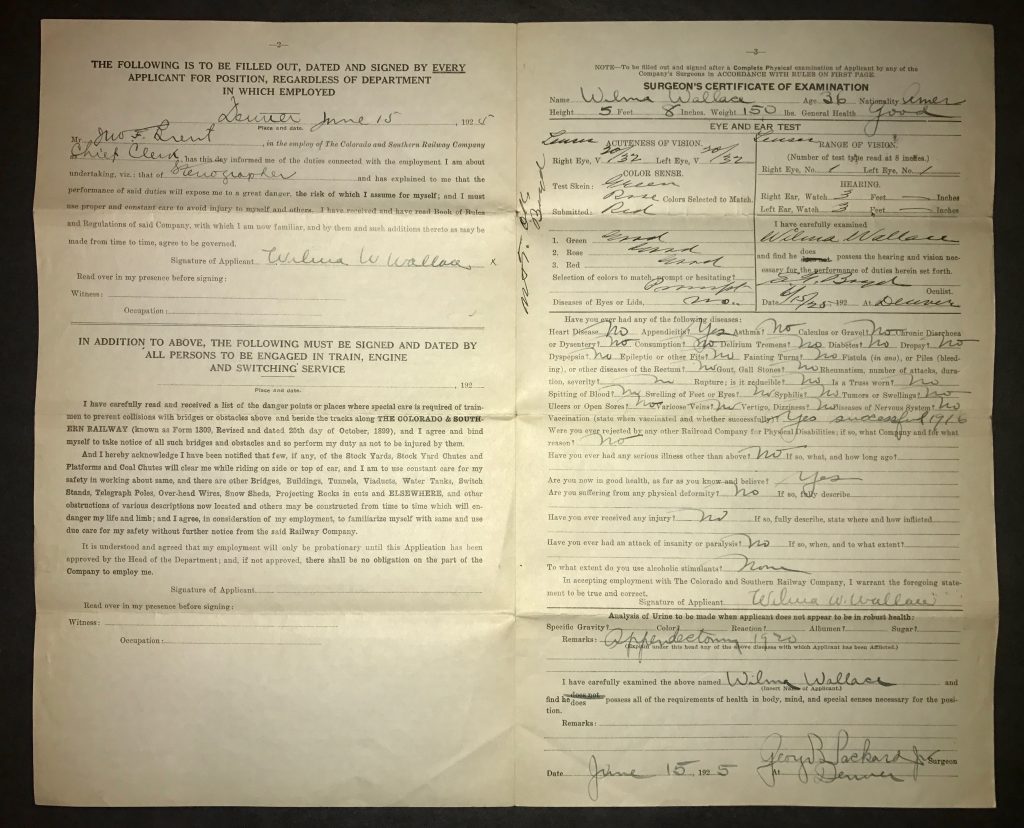 —2—
THE FOLLOWING IS TO BE FILLED OUT, DATED AND SIGNED BY EVERY
APPLICANT FOR POSITION, REGARDLESS OF DEPARTMENT
IN WHICH EMPLOYED
Denver June 15 1925
Place and date.
Mr. Jno F. Brent, in the employ of The Colorado and Southern Railway Company
Chief Clerk, has this day informed me of the duties connected with the employment I am about
undertaking, viz.: that of Stenographer and has explained to me that the
performance of said duties will expose me to a great danger, the risk of which I assume for myself; and I must
use proper and constant care to avoid injury to myself and others. I have received and have read Book of Rules
and Regulations of said Company, with which I am now familiar, and by them and such additions thereto as may be
made from time to time, agree to be governed.
Signature of Applicant Wilma W Wallace x
Read over in my presence before signing:
Witness:
Occupation:
IN ADDITION TO ABOVE, THE FOLLOWING MUST BE SIGNED AND DATED BY
ALL PERSONS TO BE ENGAGED IN TRAIN, ENGINE
AND SWITCHING SERVICE
, 192
Place and date.
I have carefully read and received a list of the danger points or places where special care is required of train-
men to prevent collisions with bridges or obstacles above and beside the tracks along THE COLORADO & SOUTH-
ERN RAILWAY (known as Form 1309, Revised and dated 25th day of October, 1899), and I agree and bind
myself to take notice of all such bridges and obstacles and so perform my duty as not to be injured by them.
And I hereby acknowledge I have been notified that few, if any, of the Stock Yards, Stock Yard Chutes and
Platforms and Coal Chutes will clear me while riding on side or top of car, and I am to use constant care for my
safety in working about same, and there are other Bridges, Buildings, Tunnels, Viaducts, Water Tanks, Switch
Stands, Telegraph Poles, Over-head Wires, Snow Sheds, Projecting Rocks in cuts and ELSEWHERE, and other
obstructions of various descriptions now located and others may be constructed from time to time which will en-
danger my life and limb; and I agree, in consideration of my employment, to familiarize myself with same and use
due care for my safety without further notice from the said Railway Company.
It is understood and agreed that my employment will only be probationary until this Application has been
approved by the Head of the Department; and, if not approved, there shall be no obligation on the part of the
Company to employ me.
Signature of Applicant
Read over in my presence before signing:
Witness:
Occupation:
—3—
NOTE—To be filled out and signed after a Complete Physical examination of Applicant by any of the
Company's Surgeons in ACCORDANCE WITH RULES ON FIRST PAGE.
SURGEON'S CERTIFICATE OF EXAMINATION
Name Wilma Wallace Age 36 Nationality Amer
Height 5 Feet 8 Inches. Weight 150 lbs. General Health Good
EYE AND EAR TEST
ACUTENESS OF VISION.
Right Eye, V 20/32 Left Eye, V 20/32
COLOR SENSE.
Test Skein: Green
Rose Colors Selected to Match.
Submitted: Red
1. Green Good
2. Rose Good
3. Red Good
Selection of colors to match, prompt or hesitating?
Prompt
Diseases of Eyes or Lids, no
RANGE OF VISION.
(Number of test type read at 8 inches.)
Right Eye, No. 1 Left Eye, No. 1
HEARING.
Right Ear, Watch 3 Feet — Inches
Left Ear, Watch 3 Feet — Inches
I have carefully examined
Wilma Wallace
and find he does possess the hearing and vision nec-
essary for the performance of duties herein set forth.
Boyd
Oculist.
Date 6/15/25, 192 At Denver
Have you ever had any of the following diseases:
Heart Disease No Appendicitis? Yes Asthma? No Calculus or Gravel? No Chronic Diarrhoea
or Dysentery? No Consumption? No Delirium Tremens? No Diabetes? No Dropsy? No
Dyspepsia? No Epileptic or other Fits? No Fainting Turns? No Fistula (in ano), or Piles (bleed-
ing), or other diseases of the Rectum? No Gout, Gall Stones? No Rheumatism, number of attacks, dura-
tion, severity? no Rupture; is it reducible? No Is a Truss worn? No
Spitting of Blood? No Swelling of Feet or Eyes? No Syphilis? No Tumors or Swellings? No
Ulcers or Open Sores? No Varicose Veins? No Vertigo, Dizziness? No Diseases of Nervous System? No
Vaccination (state when vaccinated and whether successful)? Yes successful 1916
Were you ever rejected by any other Railroad Company for Physical Disabilities; if so, what Company and for what
reason? No
Have you ever had any serious illness other than above? No If so, what, and how long ago?
Are you now in good health, as far as you know and believe? Yes
Are you suffering from any physical deformity? No If so, fully describe
Have you ever received any injury? No If so, fully describe, state where and how inflicted
Have you ever had an attack of insanity or paralysis? No If so, when, and to what extent?
To what extent do you use alcoholic stimulants? None
In accepting employment with The Colorado and Southern Railway Company, I warrant the foregoing state-
ment to be true and correct.
Signature of Applicant Wilma W. Wallace
Analysis of Urine to be made when applicant does not appear to be in robust health:
Specific Gravity? Color? Reaction? Albumen? Sugar?
Remarks: Appendectomy 1920
(Explain under this head any of the above diseases with which Applicant has been Afflicted.)
I have carefully examined the above named Wilma Wallace and
(Insert Name of Applicant.)
find he does not does possess all of the requirements of health in body, mind, and special senses necessary for the posi-
tion.
Remarks:
Geo B Packard Jr Surgeon
Date June 15, 1925 At Denver